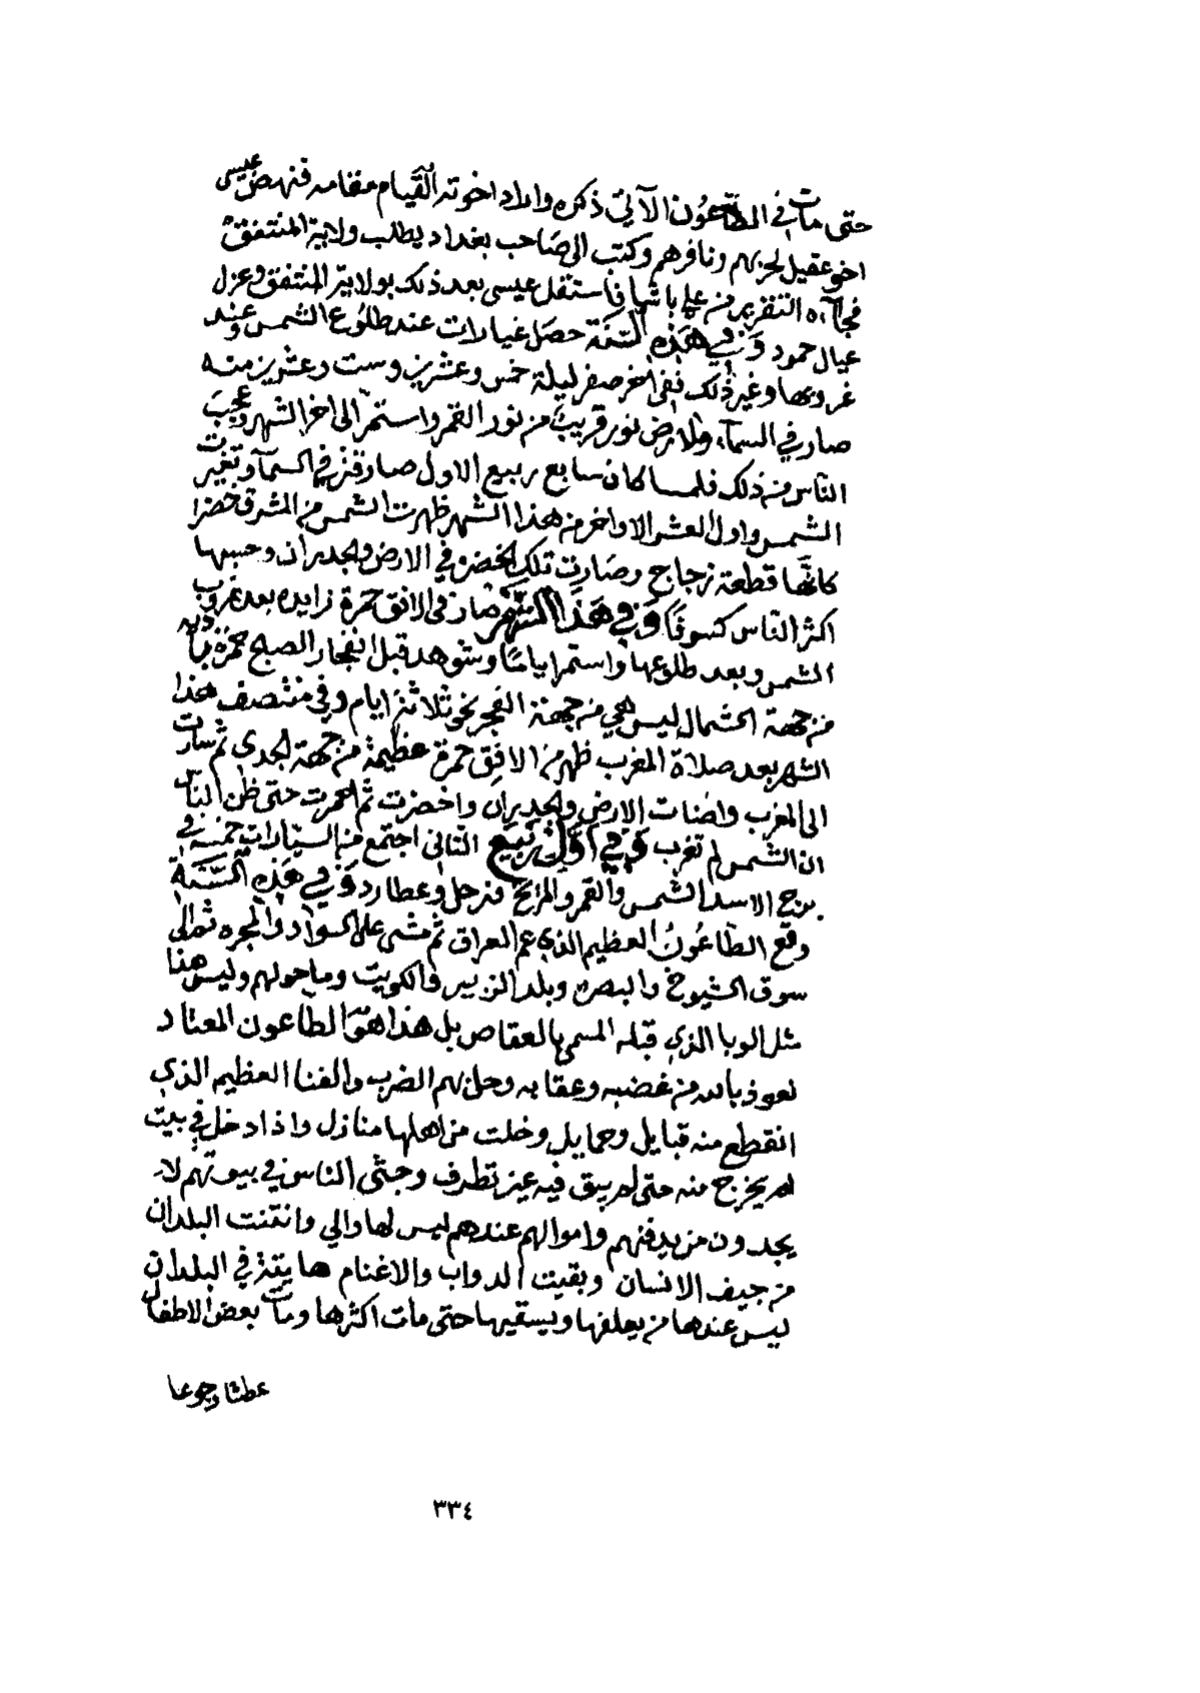 حتى مات في الطاعون الآتي ذكره واراد اخوته القيام مقامه فنهض عيسى
اخو عقيل لحربهم ونافرهم وكتب الى صاحب بغداد يطلب ولاية المنتفق
فجآءه التقرير من علي باشا فاستقل عيسى بعد ذلك بولاية المنتفق وعزل
عيال حمود وفي هذه السنة حصل غيارات عند طلوع الشمس وعند
غروبها وغير ذلك ففي آخر صفر ليلة خمس وعشرين وست وعشرين منه
صار في السمآء والارض نور قريب من نور القمر واستمر الى اخر الشهر وعجب
الناس من ذلك فلما كان سابع ربيع الاول صار قتر في السمآ وتغيرت
الشمس واول العشر الاواخر من هذا الشهر ظهرت الشمس من المشرق خضرا
كانها قطعة زجاج وصارت تلك الخضرة في الارض والجدران وحسبها
اكثر الناس كسوفا وفي هذا الشهر صار في الافق حمرة زايده بعد غروب
الشمس وبعد طلوعها واستمر اياما وشوهد قبل انفجار الصبح حمرة زايده
من جهة الشمال ليس هي من جهة الفجر نحو ثلاثة ايام وفي منتصف هذا
الشهر بعد صلاة المغرب ظهر من الافق حمرة عظيمة من جهة الجدى ثم سارت
الى المغرب واضات الارض والجدران واخضرت ثم احمرت حتى ظن الناس
ان الشمس لم تغرب وفي اول ربيع الثاني اجتمع من السيارات خمسة في
برج الاسد الشمس والقمر والمريخ وزحل وعطارد وفي هذه السنة
وقع الطاعون العظيم الذي عم العراق ثم مشى على السواد والمجره ثم الى
سوق الشيوخ والبصره وبلد الزبير والكويت وما حولهم وليس هذا
مثل الوبا الذي قبله المسمى بالعقاص بل هذا هو الطاعون المعتاد
نعوذ بالله من غضبه وعقابه وحل بهم الضرب والفنا العظيم الذي
انقطع منه قبايل وحمايل وخلت من اهلها منازل واذا دخل في بيت
لم يخرج منه حتى لم يبق فيه عين تطرف وجثى الناس في بيوتهم لا
يجدون من يدفنهم واموالهم عندهم ليس لها والي وانتنت البلدان
من جيف الانسان وبقيت الدواب والاغنام هايمة في البلدان
ليس عندها من يعلفها ويسقيها حتى مات اكثرها ومات بعض الاطفال
عطشا وجوعا
٣٣٤